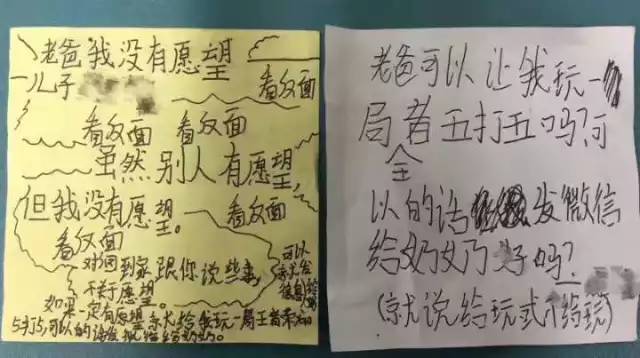 老爸我没有愿望
儿子
看反面
看反面 看反面
虽然别人有愿望,
但我没有愿望。
看反面
看反面
到家跟你说些事,
不关于愿望。
如果一定有愿望
给我玩一局王者荣
5打5,可以的话发
给奶奶。
可以
老爸可以让我玩一
局王者五打五吗?可
以的话 发微信
给奶奶好吗?
(就说给玩或不给玩)